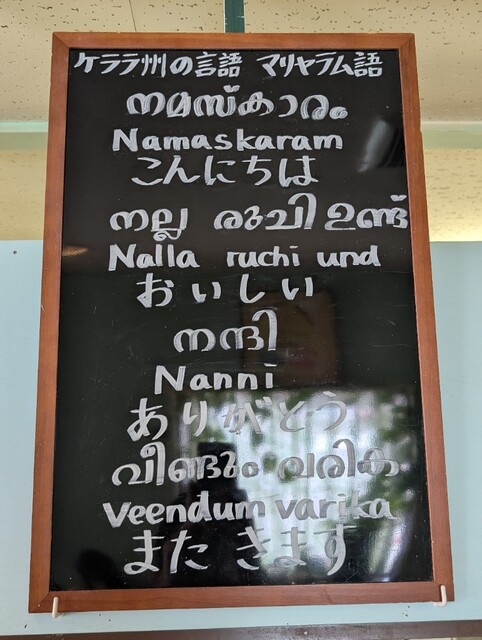 ケララ州の言語 マリャラム語
നമസ്കാരം
Namaskaram
こんにちは
നല്ല രുചി ഉണ്ട്
Nalla ruchi und
おいしい
നന്ദി
Nanni
ありがとう
വീണ്ടും വരിക
Veendum varika
また きます